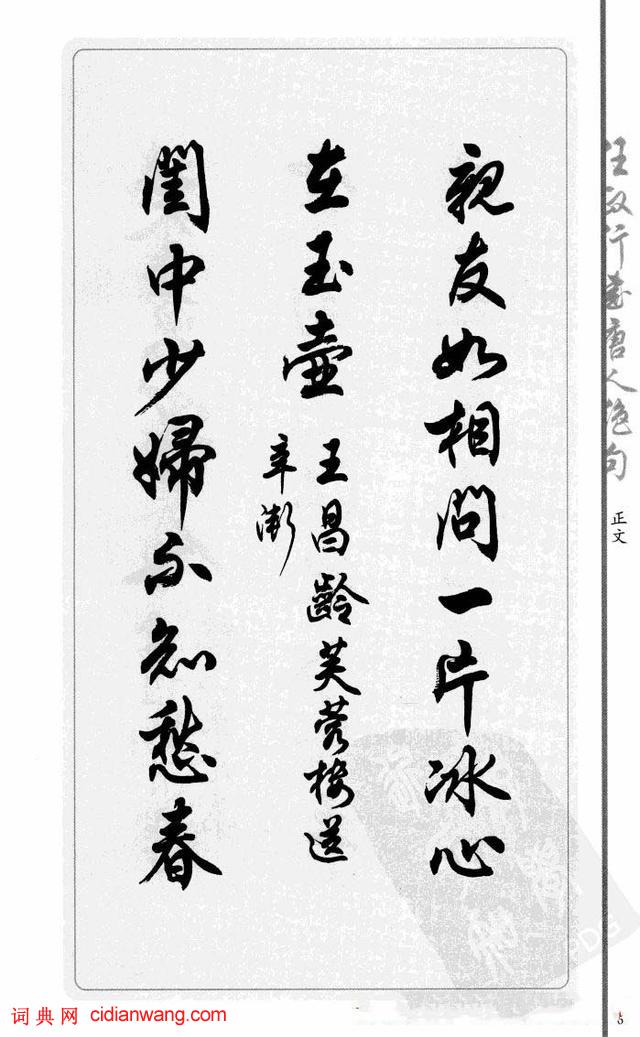 親友如相問一片冰心
在玉壺
王昌齡芙蓉樓送
辛漸
閨中少婦不知愁春
任政行書唐人绝句
正文
5
词典网 cidianwang.com